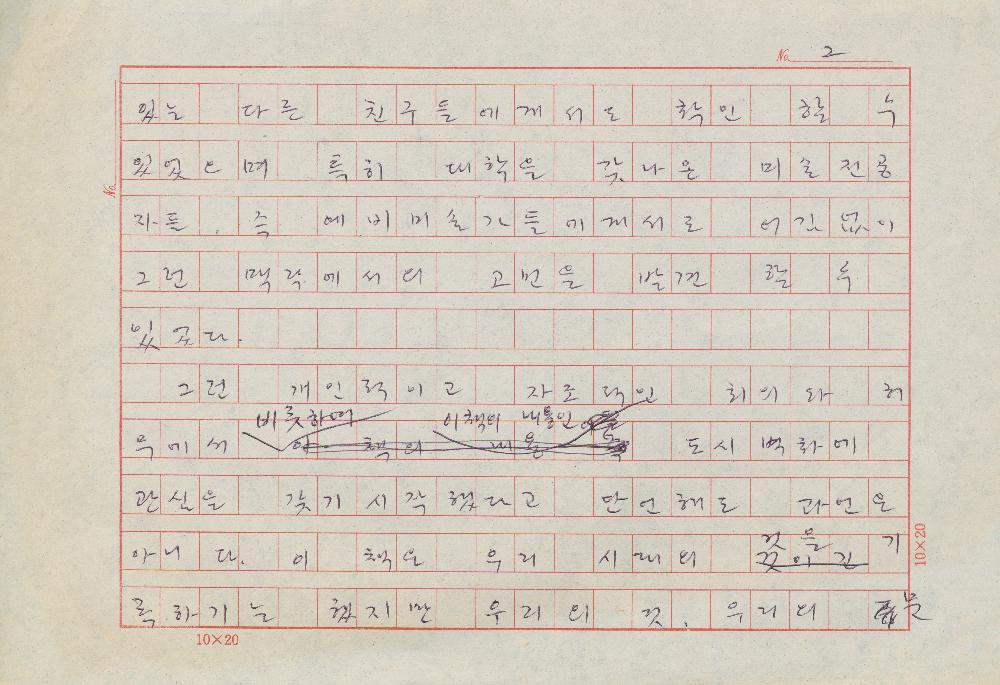 No. 2
있는 다른 친구들에게서도 확인 할 수
있었으며 특히 대학을 갖나온 미술전공
No.
자들, 즉 예비미술가들에게서도 어김없이
그런 맥락에서의 고민을 발견 할 수
있었다.
그런 개인적이고 자조적인 회의와 허
비롯하여 이책의 내용인
무에서 이 책의 내용 도시벽화에
관심을 갖기 시작했다고 단언해도 과언은
것을 기
아니다. 이 책은 우리 시대의 것이긴
10×20
록하기는 했지만 우리의 것, 우리의 붓
10×20